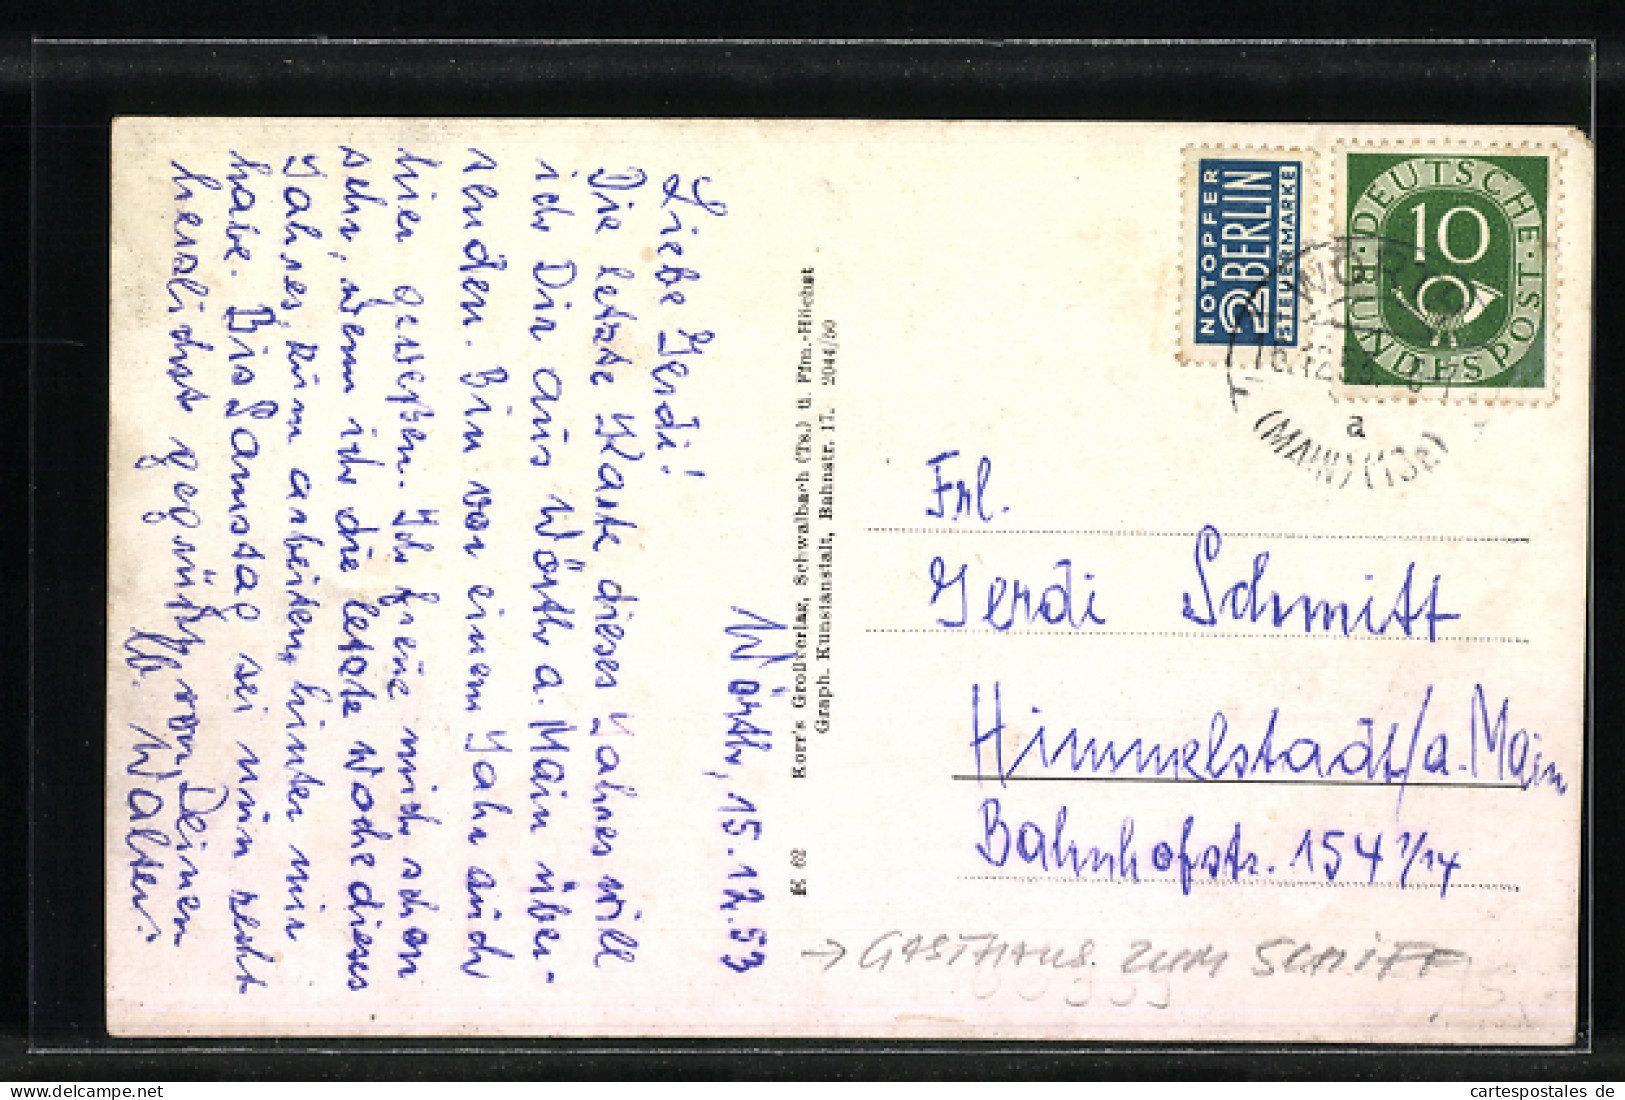 Wörth, 15.12.53
Liebe Gerdi!
Die letzte Karte dieses Jahres will
ich Dir aus Wörth a. Main über-
senden. Bin vor einem Jahr auch
hier gewesen. Ich freue mich schon
sehr, wenn ich die letzte Woche dieses
Jahres, zum arbeiten, hinter mir
habe. Bis Samstag sei nun recht
herzlichst gegrüßt von Deinem
Walter.
K 62 Korr's Großverlag, Schwalbach (Ts.) u. Ffm.-Höchst
Graph. Kunstanstalt, Bahnstr. 17. 2044/50
NOTOPFER
2 BERLIN
STEUERMARKE
DEUTSCHE
BUNDESPOST
10
WÖRTH
16.12.53
a
(MAIN) (13a)
Frl.
Gerdi Schmitt
Himmelstadt/a. Main
Bahnhofstr. 154 1/14
→ GASTHAUS ZUM SCHIFF
My Ref. 162
cartespostales de